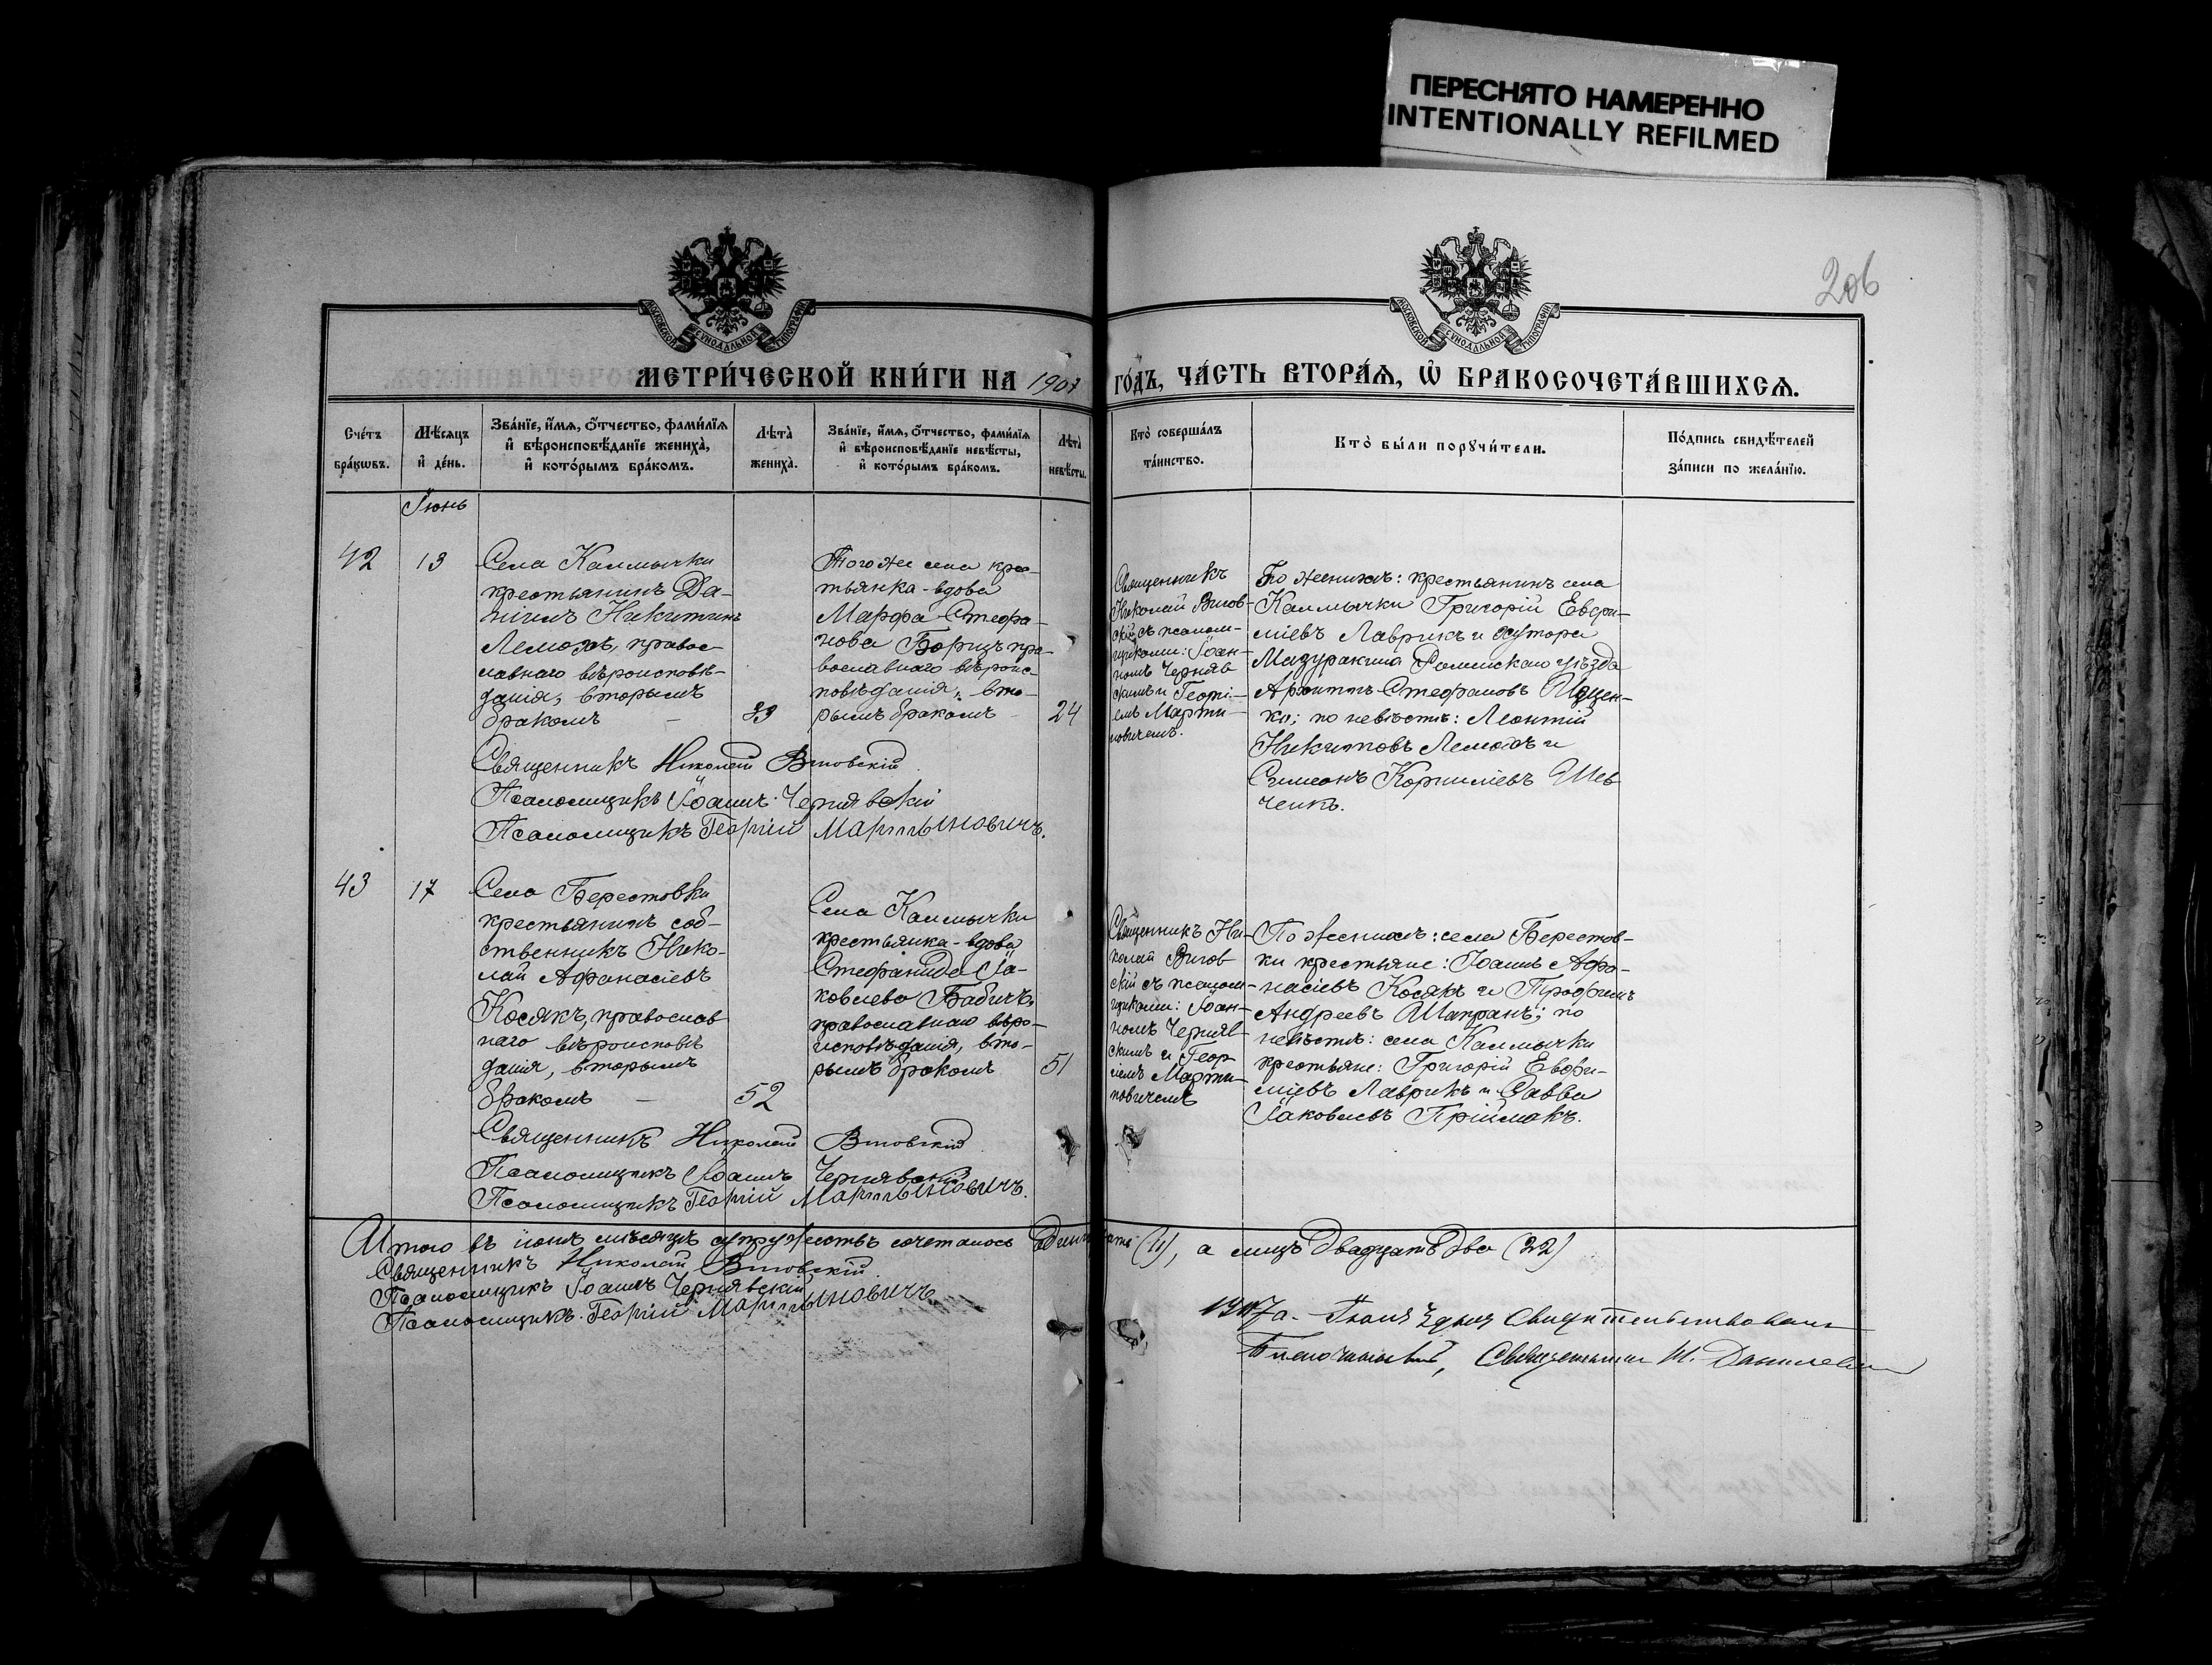 ПЕРЕСНЯТО НАМЕРЕННО
INTENTIONALLY REFILMED
206
МОСКОВСКОЙ СѴНОДАЛЬНОЙ ТИПОГРАФІИ
МОСКОВСКОЙ СѴНОДАЛЬНОЙ ТИПОГРАФІИ
МЕТРИ́ЧЕСКОЙ КНИ́ГИ НА 1907 ГО́ДЪ, ЧА́СТЬ ВТОРА́Ѧ, Ѡ БРАКОСОЧЕТА́ВШИХСѦ.
Сче́тъ
бра́кѡвъ.
Мѣ́сѧцъ
и де́нь.
Зва́нїе, и́мѧ, о́тчество, фами́лїѧ
и вѣроисповѣ́данїе жениха̀,
и кото́рымъ бра́комъ.
Лѣта̀
жениха̀.
Зва́нїе, и́мѧ, о́тчество, фами́лїѧ
и вѣроисповѣ́данїе невѣ́сты,
и кото́рымъ бра́комъ.
Лѣта̀
невѣ́сты.
Кто̀ соверша́лъ
та́инство.
Кто̀ бы́ли порꙋчи́тели.
По́дпись свидѣ́телей
за́писи по жела́нїю.
Іюнь
42
13
Села Калмычки
крестьянинъ Да-
ніилъ Никитинъ
Лемохъ, правос
лавнаго вѣроисповѣ-
данія, вторымъ
бракомъ —
33
Того же села крес-
тьянка-вдова
Марфа Стефа-
нова Борицъ пра-
вославнаго вѣроис-
повѣданія, вто-
рымъ бракомъ
24
Священникъ
Николай Витов-
скій съ псалом-
щиками: Іоан-
номъ Черняв-
скимъ и Георгі-
емъ Марти-
новичемъ.
По женихѣ: крестьянинъ села
Калмычки Григорій Евфи-
міевъ Лаврикъ и хутора
Роменскаго уѣзда
Стефановъ Ищен-
ко; по невѣстѣ: Леонтій
Никитовъ Лемохъ и
Симеонъ Корниліевъ Шев
ченко.
Священникъ Николай Витовскій
Псаломщикъ Іоаннъ Чернявскій
Псаломщикъ Георгій Мартыновичъ.
43
17
Села Берестовки
крестьянинъ соб-
ственникъ Нико-
лай Афанасіевъ
Косякъ, православ
наго вѣроисповѣ
данія, вторымъ
бракомъ —
52
Села Калмычки
крестьянка-вдова
Стефанида Іа-
ковлева Бабичъ,
православнаго вѣро-
исповѣданія, вто-
рымъ бракомъ
51
Священникъ Ни-
колай Витов
скій съ псалом-
щиками: Іоан-
номъ Черняв-
скимъ и Геор
гіемъ Марти-
новичемъ
По женихѣ: села Берестов-
ки крестьяне: Іоаннъ Афа-
насіевъ Косякъ и Трофимъ
Андреевъ Шапранъ; по
невѣстѣ: села Калмычки
крестьяне: Григорій Евфи-
міевъ Лаврикъ и Савва
Іаковлевъ Пріймакъ.
Священникъ Николай Витовскій
Псаломщикъ Іоаннъ Чернявскій
Псаломщикъ Георгій Мартыновичъ.
Итого въ іюнѣ мѣсяцѣ супружествъ сочеталось одиннадцать (11), а лицъ двадцать два (22)
Священникъ Николай Витовскій
Псаломщикъ Іоаннъ Чернявскій
Псаломщикъ Георгій Мартыновичъ
1907 г. Іюля дня Свидѣтельствовалъ
Благочинный, Священникъ